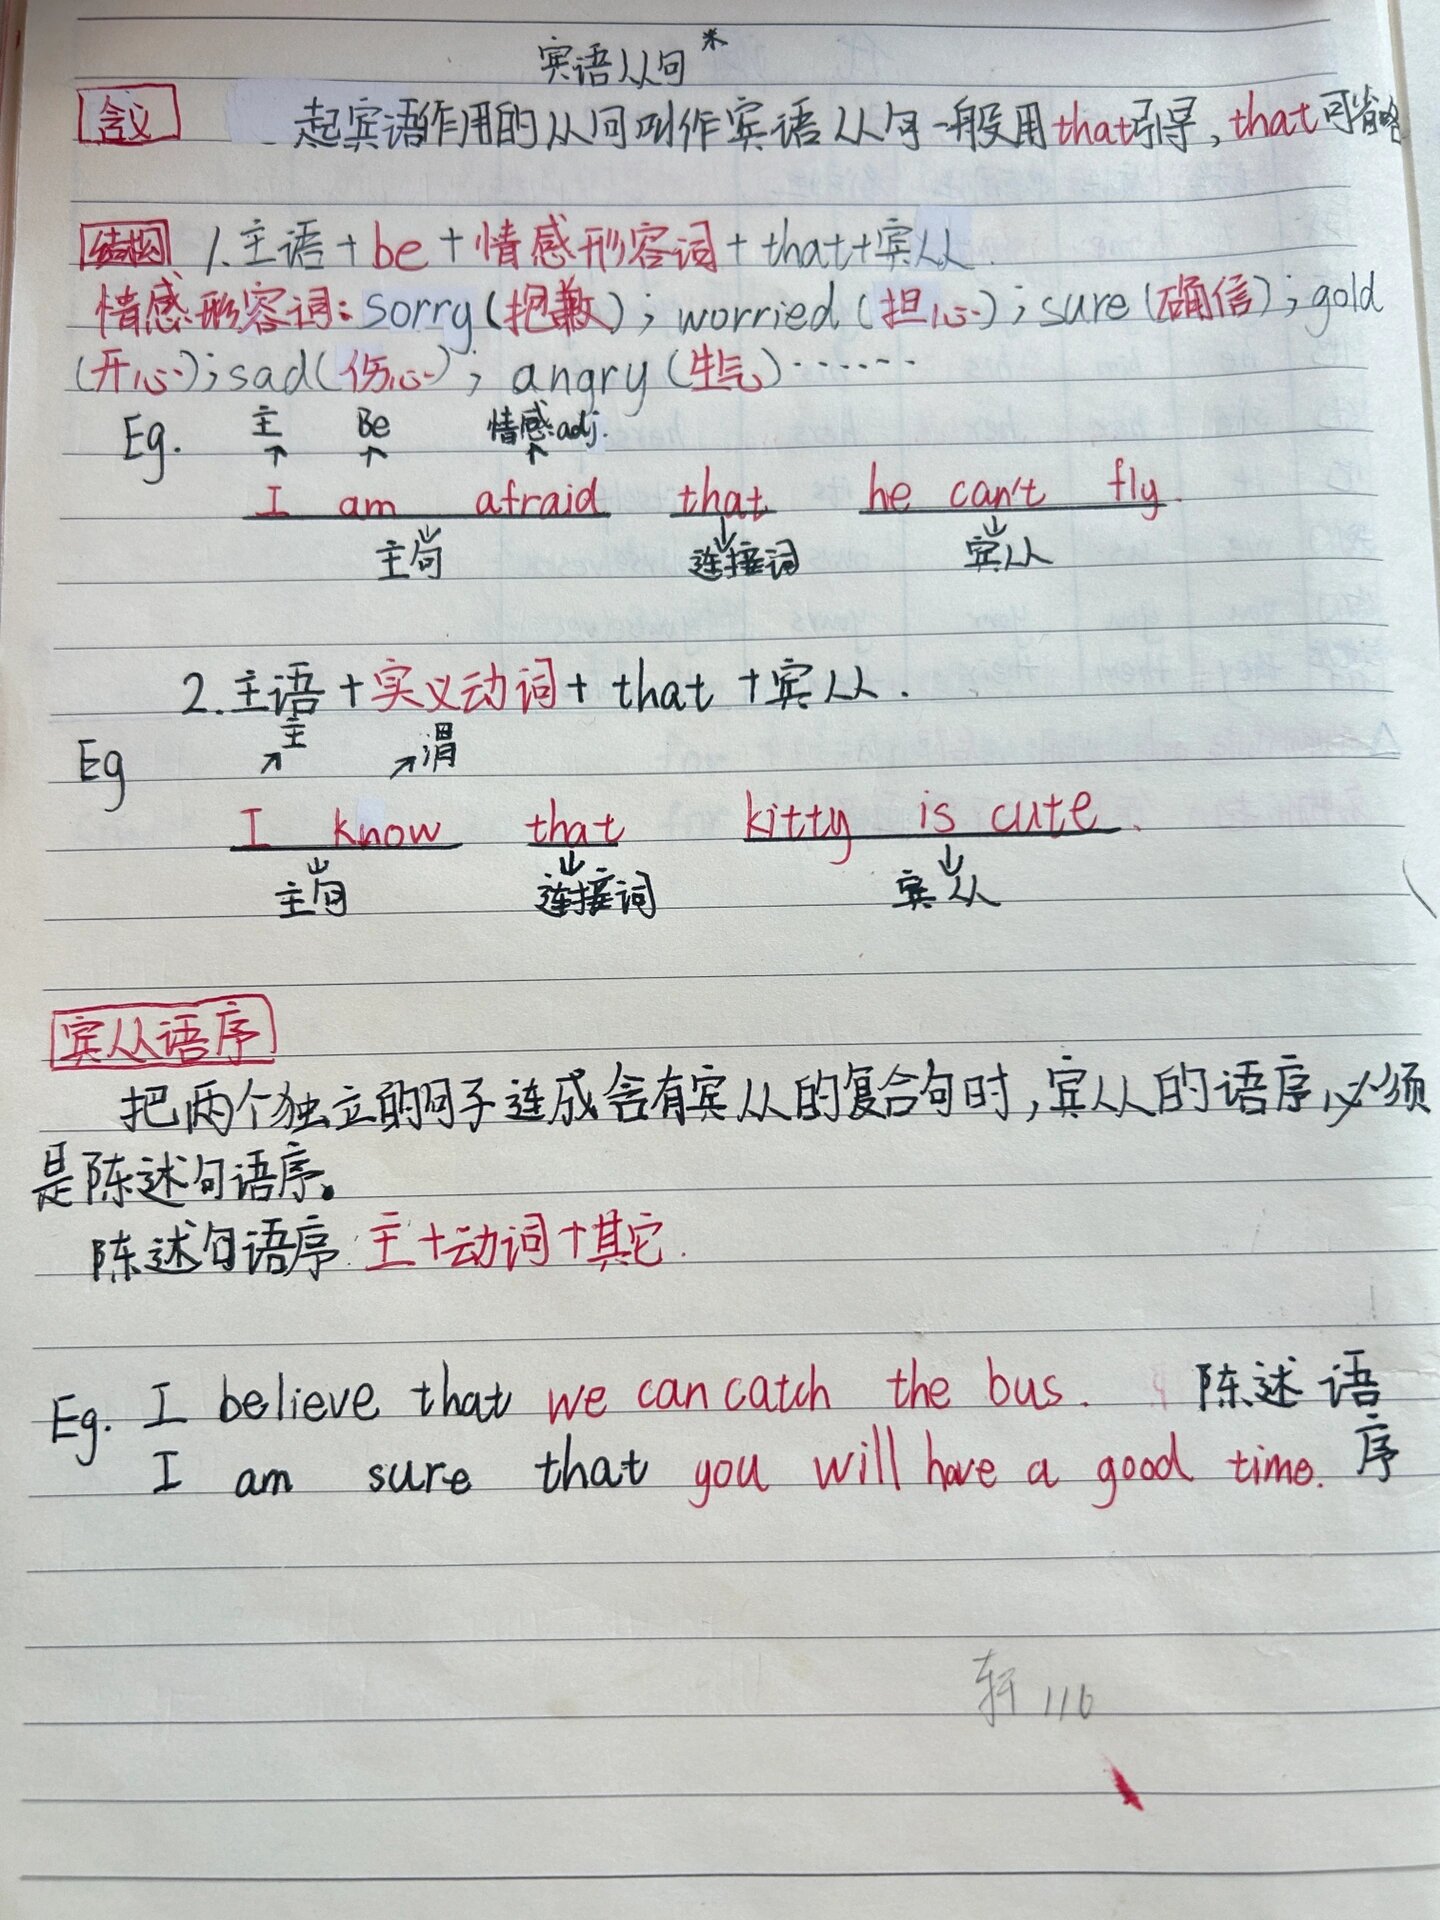 宾语从句*
含义 起宾语作用的从句叫作宾语从句一般用that引导,that可省略
结构 1.主语+be+情感形容词+that+宾从.
情感形容词:sorry(抱歉);worried(担心);sure(确信);gold
(开心);sad(伤心);angry(生气)······
Eg. 主 Be 情感adj.
I am afraid that he can't fly.
主句 连接词 宾从
2.主语+实义动词+that+宾从.
Eg 主 谓
I know that kitty is cute.
主句 连接词 宾从
宾从语序
把两个独立的句子连成含有宾从的复合句时,宾从的语序必须
是陈述句语序。
陈述句语序:主+动词+其它.
Eg. I believe that we can catch the bus. 陈述语
I am sure that you will have a good time. 序
轩 116